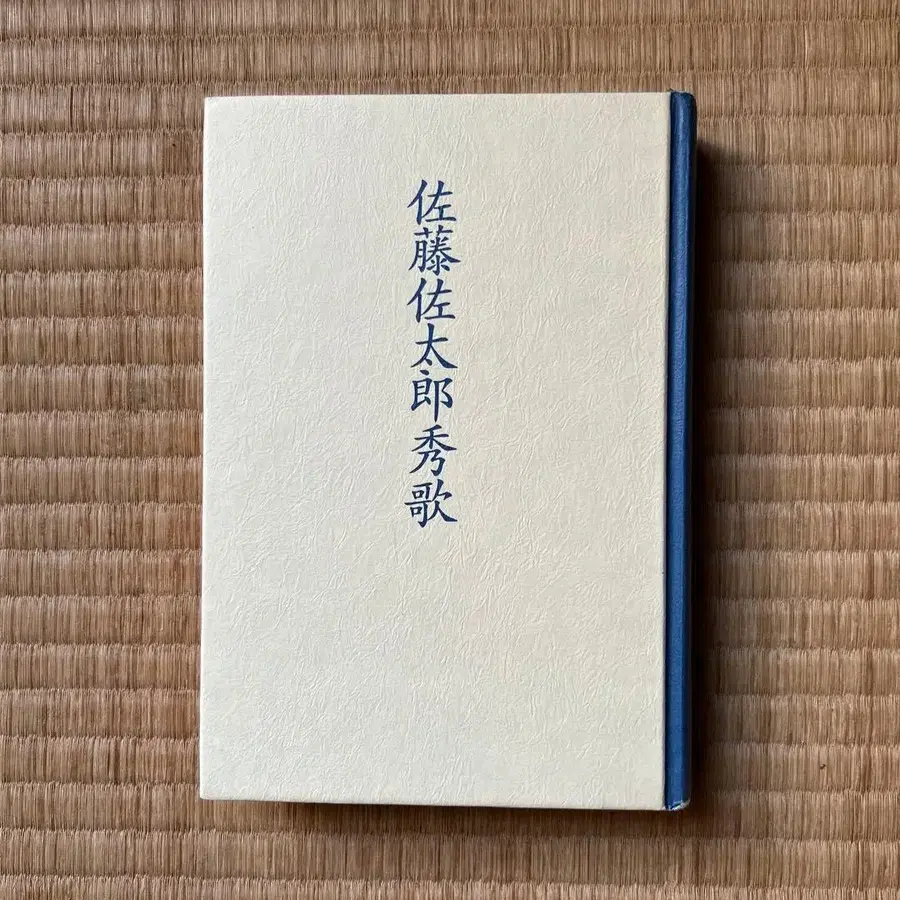 佐藤佐太郎秀歌